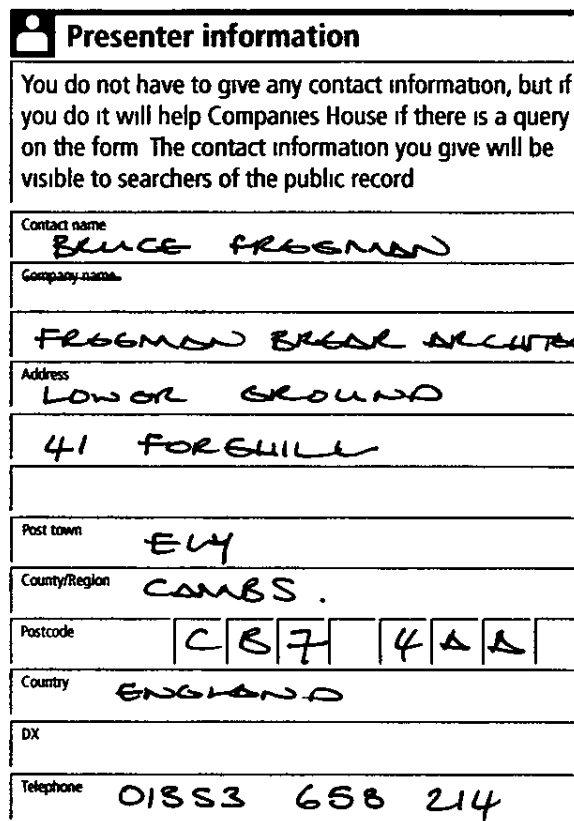 Presenter information
You do not have to give any contact information, but if
you do it will help Companies House if there is a query
on the form The contact information you give will be
visible to searchers of the public record
Contact name
BRUCE FREEMAN
Company name
FREEMAN BREAR ARCHITEC
Address
LOWER GROUND
41 FOREHILL
Post town
ELY
County/Region
CAMBS.
Postcode
CB7 4AA
Country
ENGLAND
DX
Telephone
01353 658 214